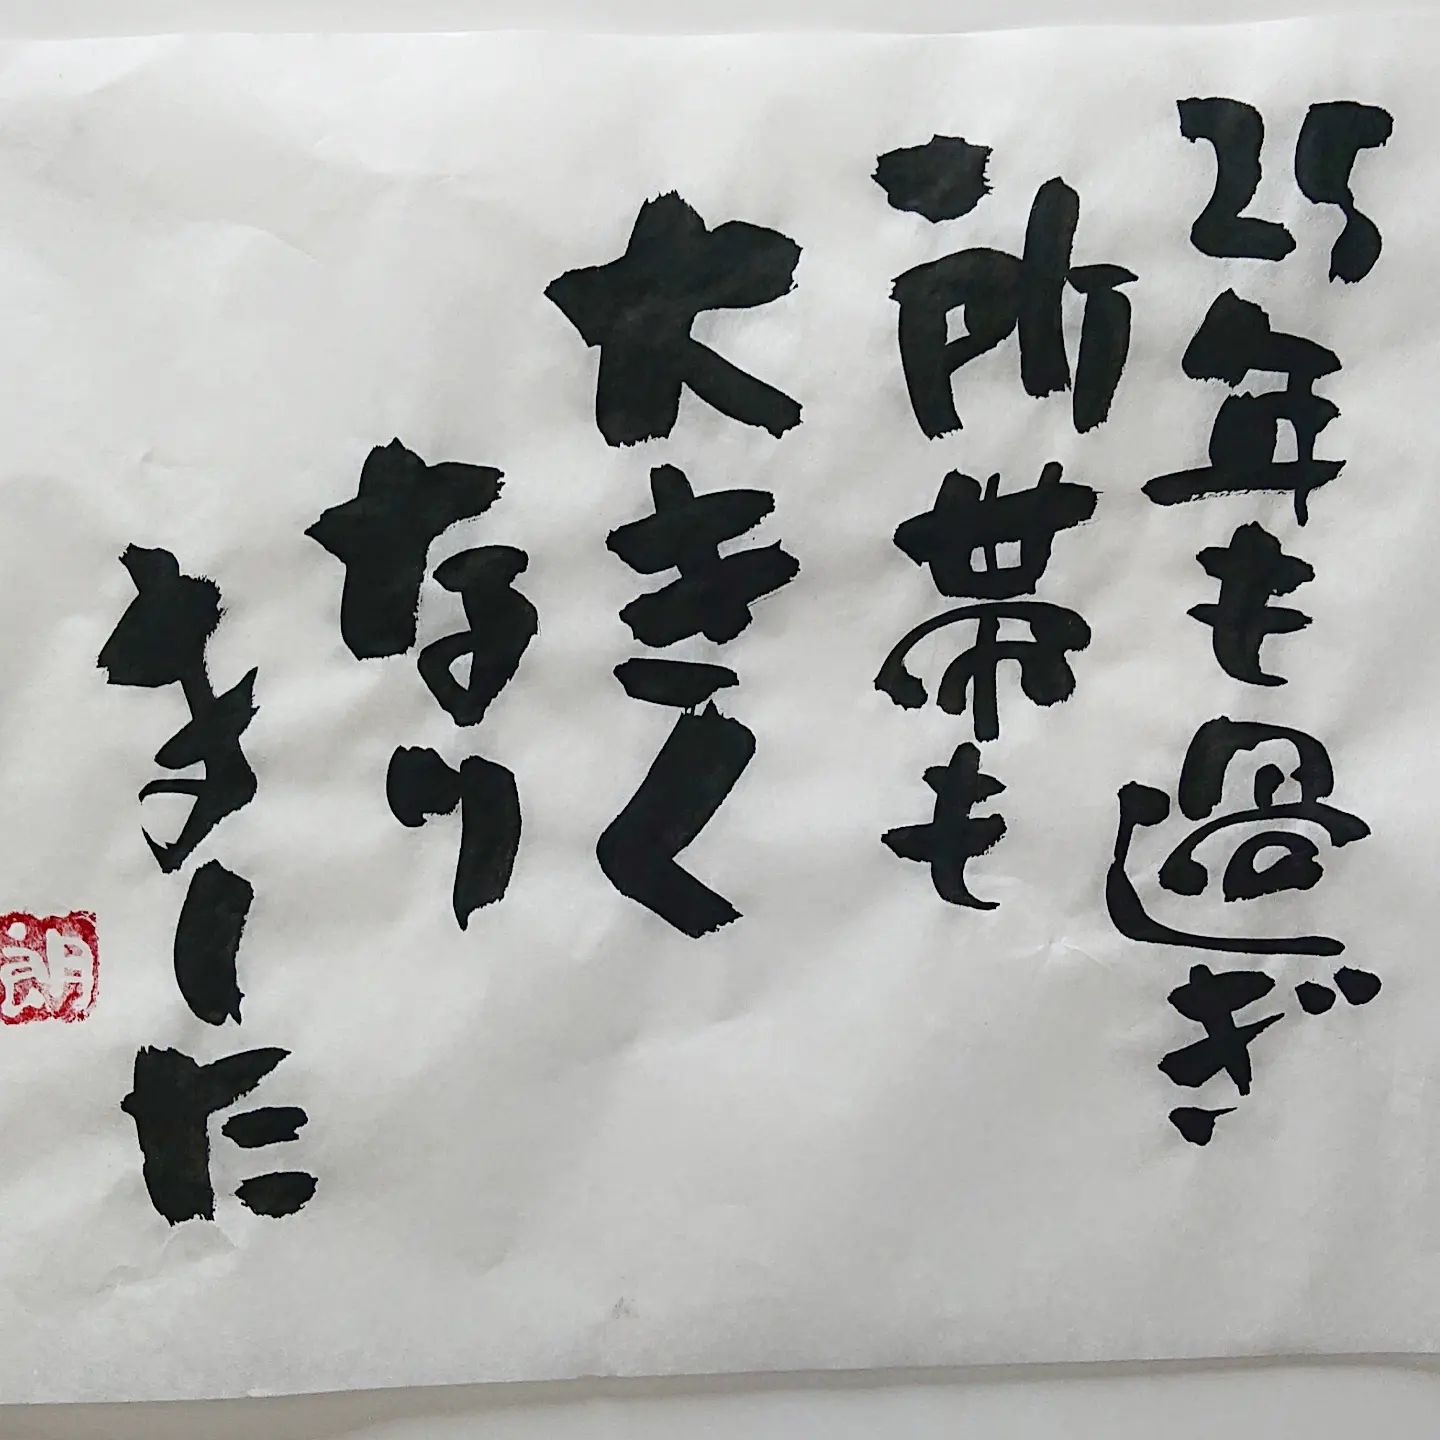 25年も過ぎ
所帯も
大きく
なり
ました
朗